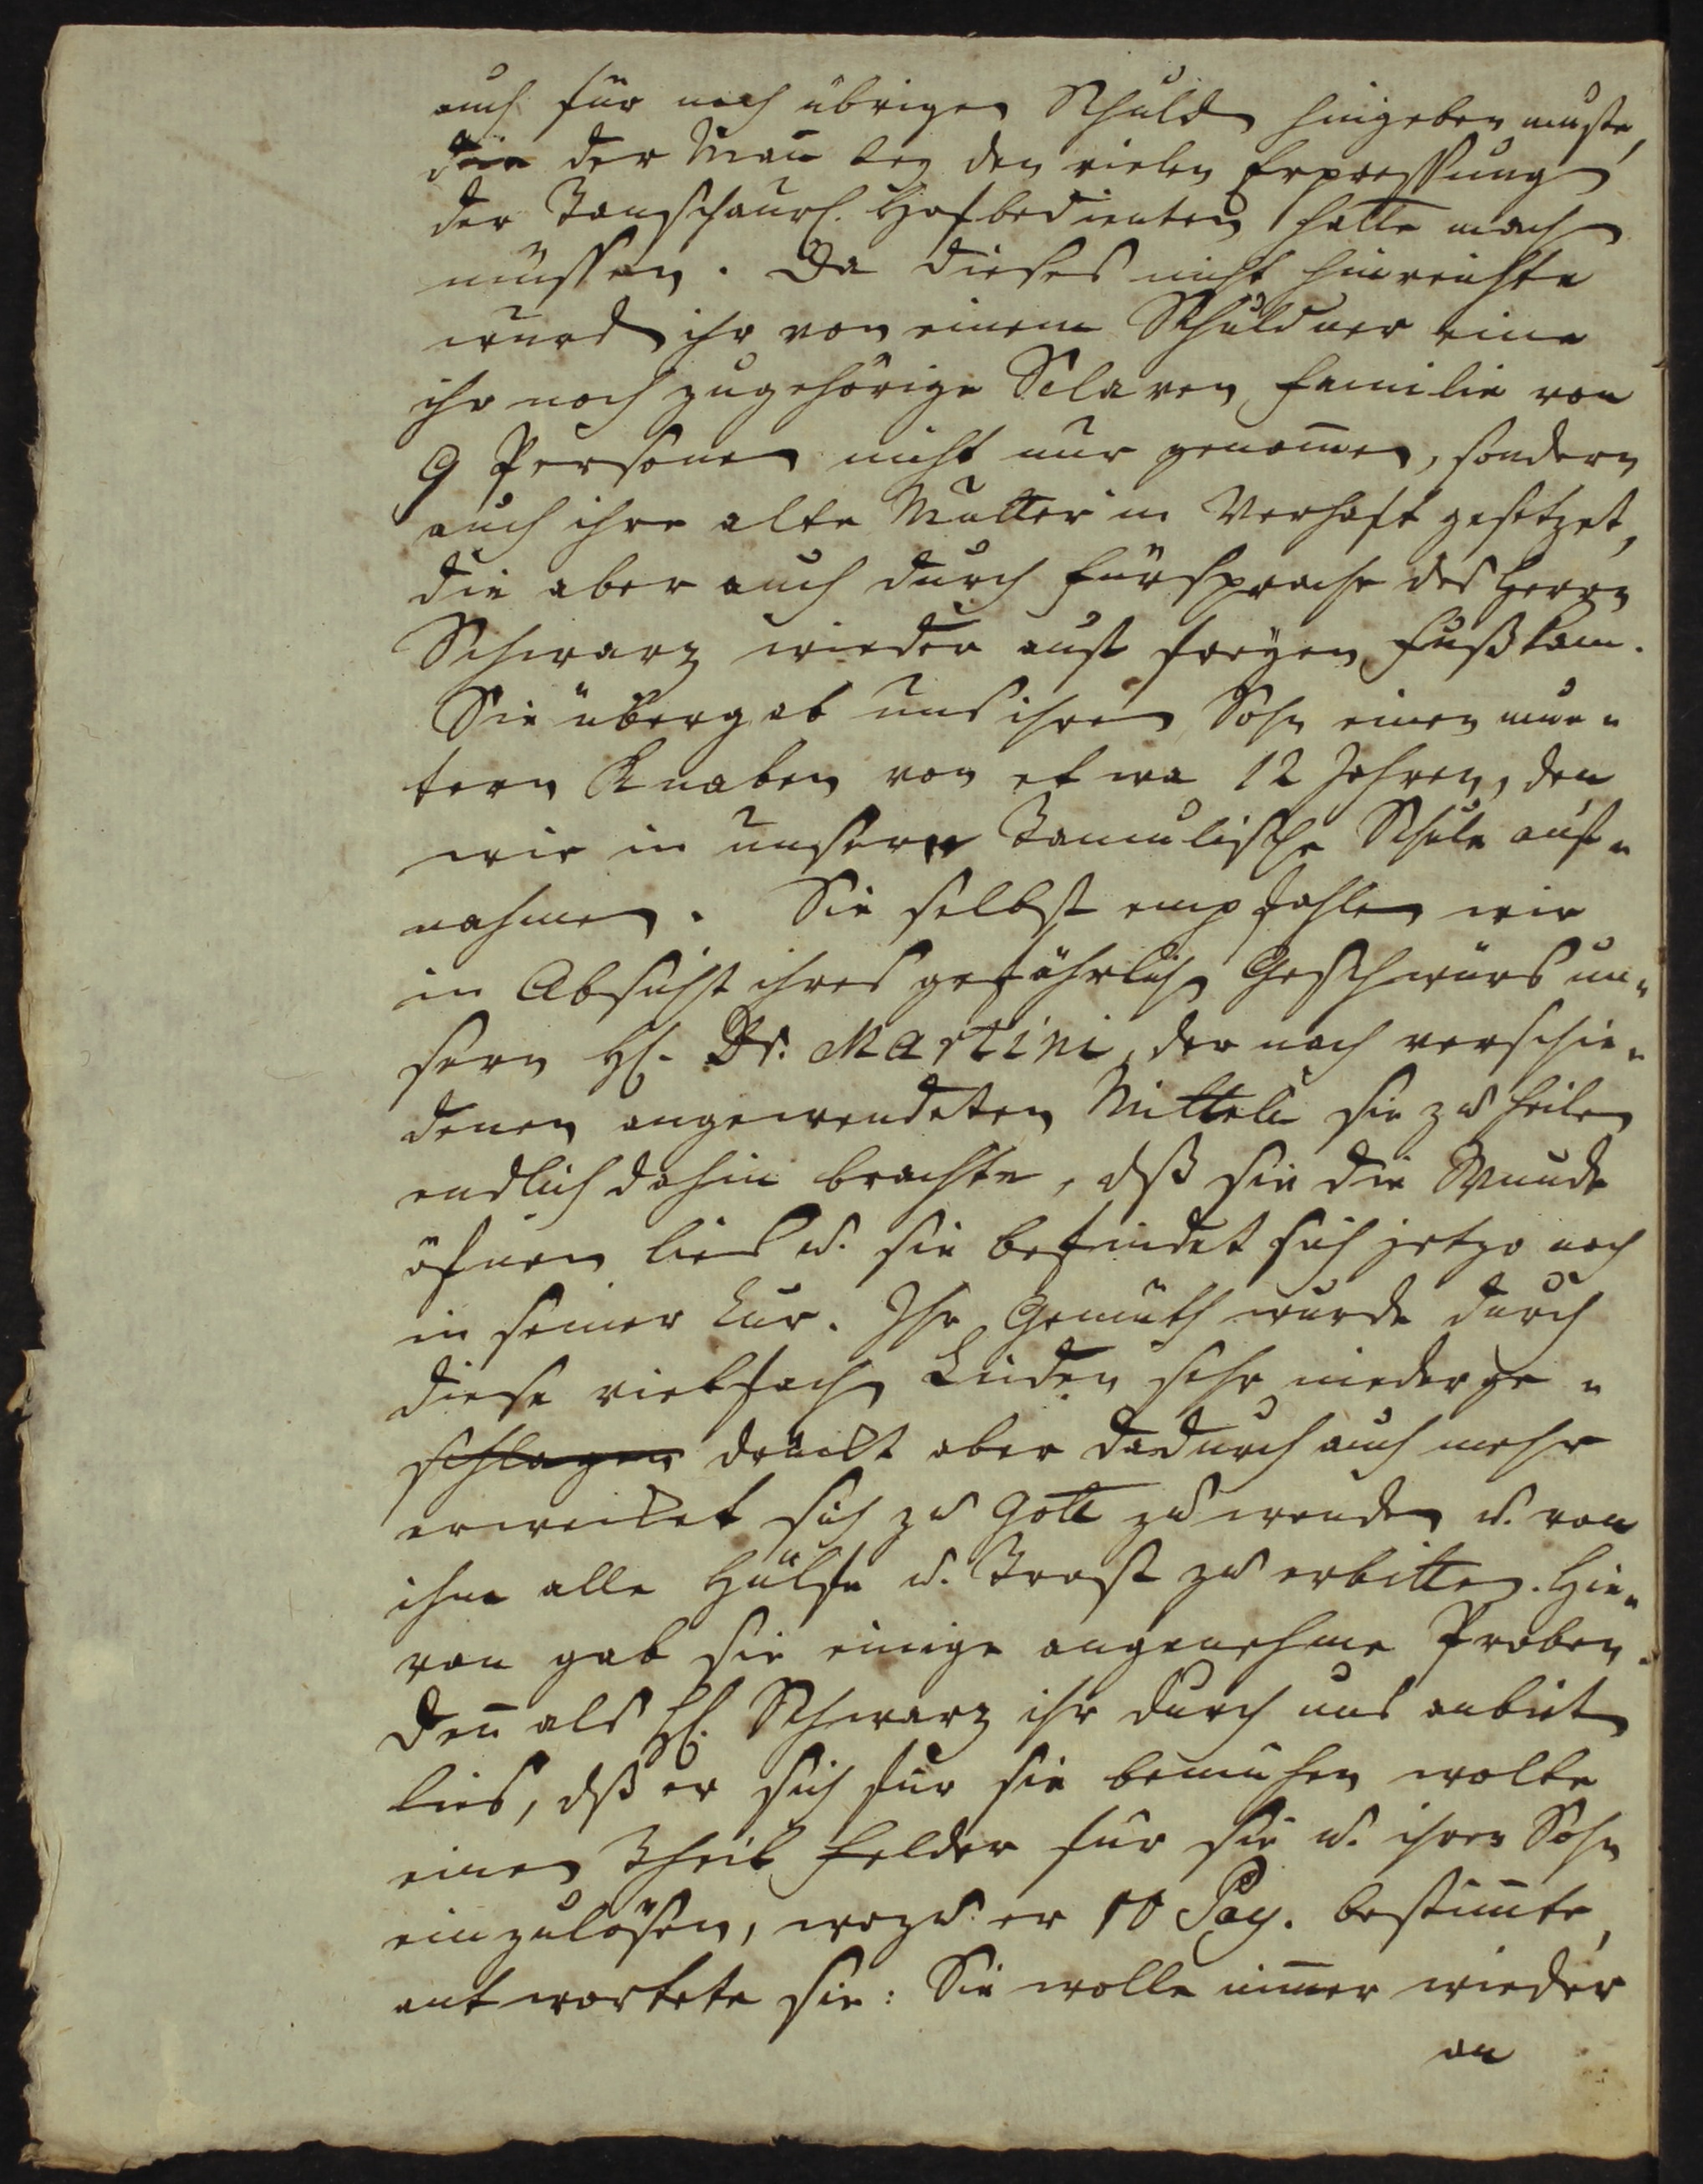 auch für noch übrige Schulden hingeben muste,
die der Mañ bey den vielen Erpressungen
der Tanschaurl. Hofbedienten hatte machen
müssen. Da dieses nicht hinreichte
wurde ihr von einem Schuldner eine
ihr noch zugehörige Sclaven familie von
9 Personen nicht nur genom̄en, sondern
auch ihre alte Mutter in Verhaft gesetzet,
die aber auch durch Fürsprache des Herrn
Schwarz wieder auf freyen Fuß kam.
Sie übergab uns ihren Sohn einen mun-
tern Knaben von etwa 12 Jahren, den
wir in unsere Tamulische Schule auf-
nahmen. Sie selbst empfahlen wir
in Absicht ihres gefährlichen Geschwürs un-
sern H. Dr. Martini, der nach verschie-
denen angewendeten Mitteln sie zu heilen
endlich dahin brachte, dß sie die Wunde
öfnen lies u. sie befindet sich jetzo noch
in seiner Cur. Ihr Gemüth wurde durch
diese vielfachen Leiden sehr niederge-
schlagen drückt aber dadurch auch mehr
erwecket sich zu Gott zu wenden u. von
ihm alle Hülfe u. Trost zu erbitten. Hie-
von gab sie einige angenehme Proben.
Deñ als H. Schwarz ihr durch uns anbieten
lies, dß er sich für sie bemühen wolte
einen Theil Felder für sie u. ihren Sohn
einzulösen, wozu er 10 Pag. bestim̄te,
antwortete sie: Sie wolle im̄er wieder
an